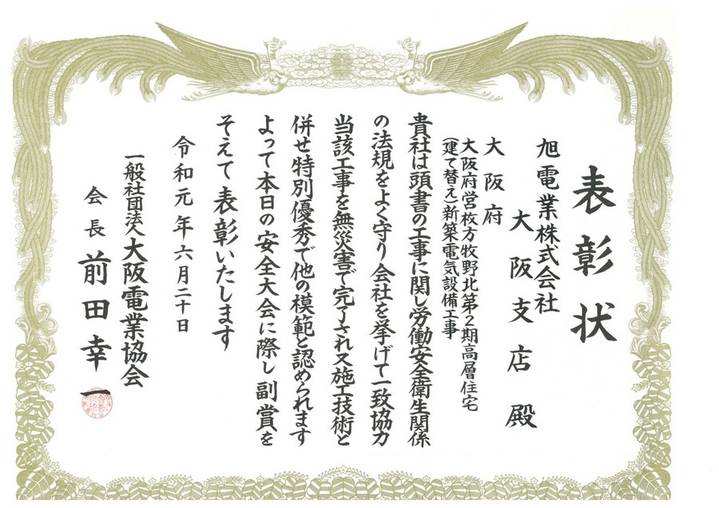 表彰状
旭電業株式会社
大阪支店 殿
大阪府
大阪府営枚方牧野北第2期高層住宅
(建て替え)新築電気設備工事
貴社は頭書の工事に関し労働安全衛生関係
の法規をよく守り会社を挙げて一致協力
当該工事を無災害で完了され又施工技術と
併せ特別優秀で他の模範と認められます
よって本日の安全大会に際し副賞を
そえて表彰いたします
令和元年六月二十日
一般社団法人大阪電業協会
会長 前田幸一